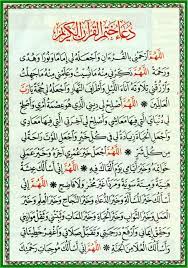 دعاء ختم القرآن الكريم
اللهم ارحمني بالقرءان واجعله لي إماما ونورا وهدى
ورحمة * اللهم ذكرني منه ما نسيت وعلمني منه ما جهلت
وارزقني تلاوته آناء الليل وأطراف النهار واجعله لي حجة يا رب
العالمين * اللهم أصلح لي ديني الذي هو عصمة أمري وأصلح لي
دنياي التي فيها معاشي وأصلح لي آخرتي التي فيها معادي
واجعل الحياة زيادة لي في كل خير واجعل الموت راحة لي
من كل شر * اللهم اجعل خير عمري آخره وخير عملي
خواتمه وخير أيامي يوم ألقاك فيه * اللهم إني أسألك
عيشة هنية وميتة سوية ومردا غير مخز ولا فاضح * اللهم
إني أسألك خير المسألة وخير الدعاء وخير النجاح وخير العلم
وخير العمل وخير الثواب وخير الحياة وخير الممات وثبتني وثقل
موازيني وحقق إيماني وارفع درجتي وتقبل صلاتي واغفر خطيئاتي
وأسألك العلا من الجنة * اللهم إني أسألك موجبات رحمتك